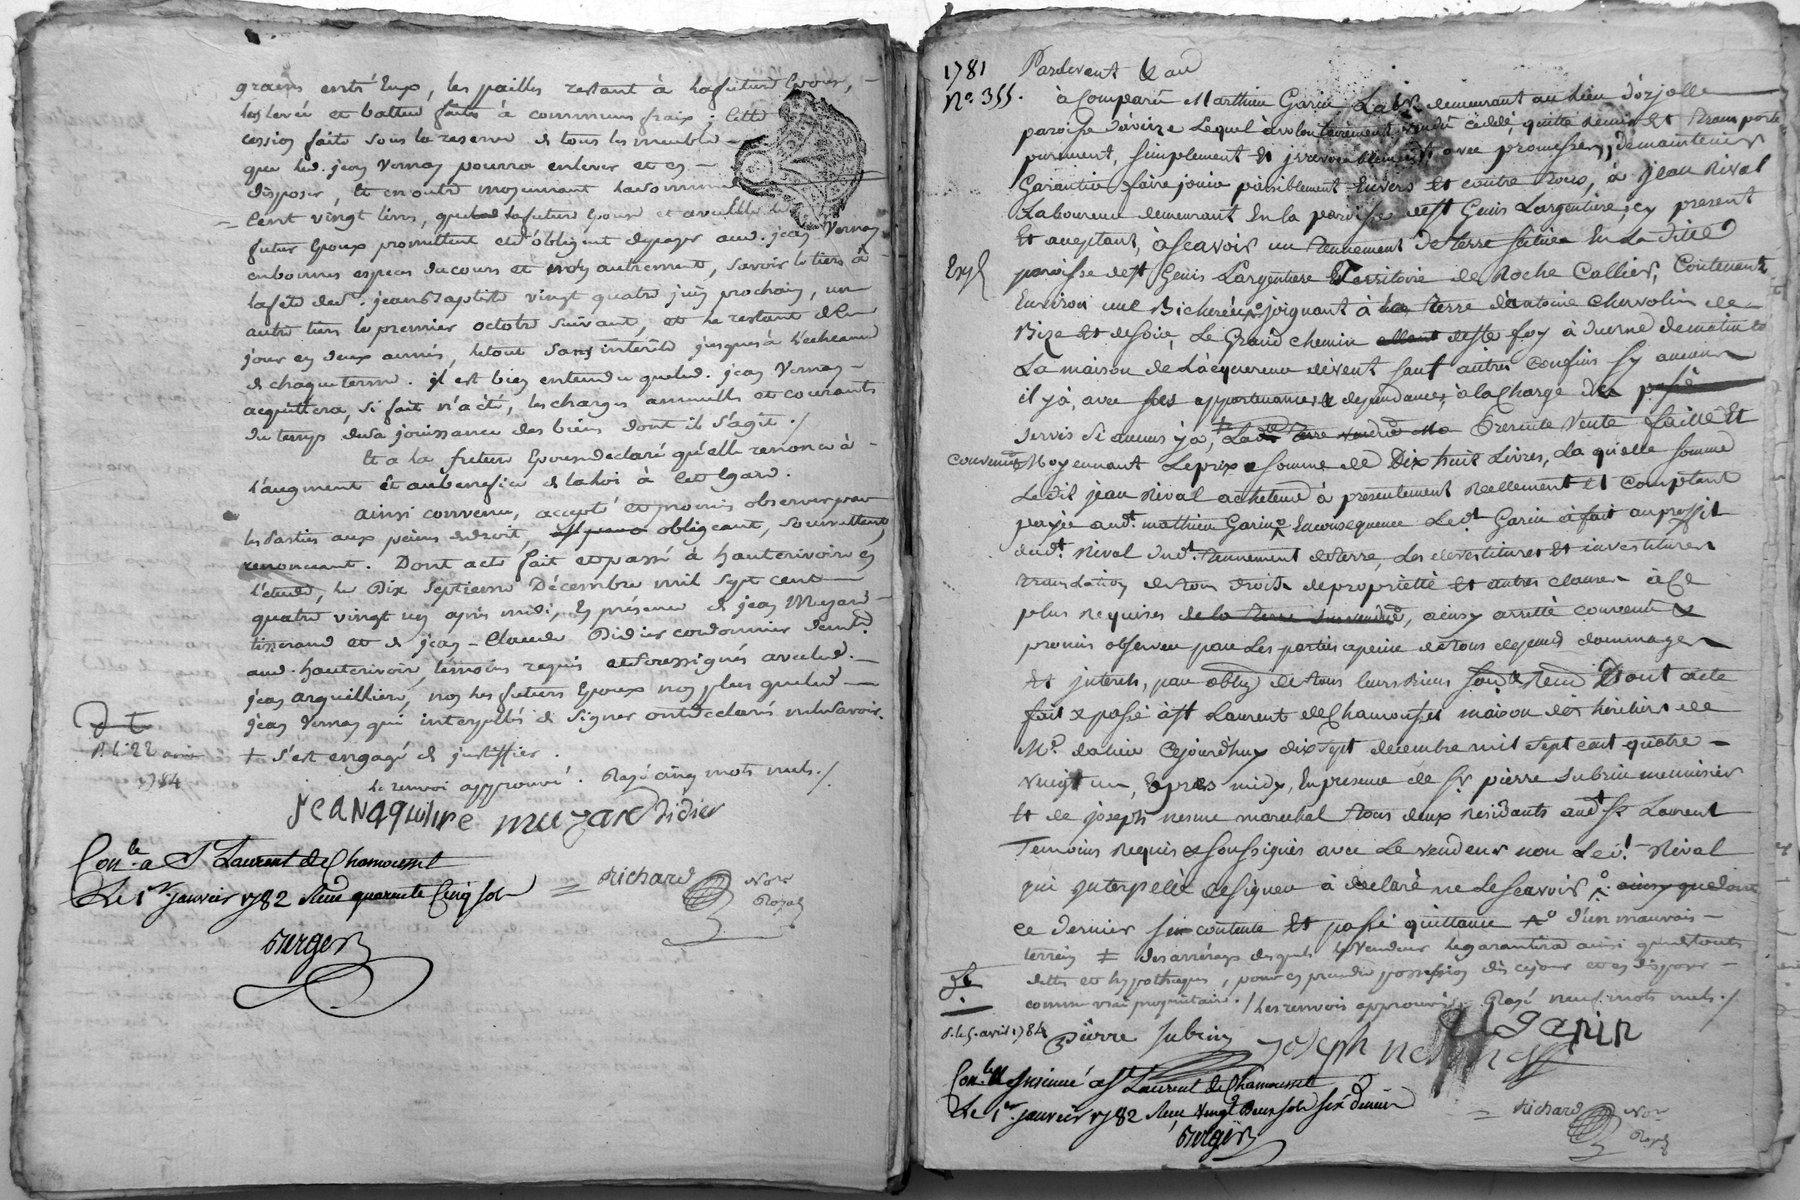 grains entr'Eux, les pailles restant à la future Epouse,
les levée et batture faites à communs fraix ; cette
cession faite sous la reserve de tous les meubles
que led. jean Vernay pourra enlever et en
disposer, Et en outre moyennant la somme de
Cent vingt livres, que la future Epouse et
futur Epoux promettent et s'obligent de payer aud. jean Vernay
en bonnes especes du cours et non autrement, savoir le tiers à
la fête de st. jean Baptiste vingt quatre juin prochain, un
autre tiers le premier octobre suivant, et le restant de ce
jour en deux années, le tout sans interêts jusques à l'echeance
de chaque terme. il est bien entendu que led. jean Vernay
acquittera, si fait n'a été, les charges annuelles et courantes
du temps de sa jouissance des biens dont il s'agit ./
Et a la future Epouse declaré qu'elle renonce à
l'augment et au benefice de la loi à cet egard.
ainsi convenu, accepté et promis observer par
les Parties aux peines de droit, obligeant, soumettant,
renonceant. Dont acte fait et passé à hauterivoire en
l'étude, le Dix Septieme Décembre mil sept cent
quatre vingt un après midi, En présence de jean Mezard
tisserand et de jean-Claude Didier cordonnier demt.
aud. hauterivoire, témoins requis et soussignés avec led.
jean arquilliere, non les futurs Epoux non plus que led.
jean Vernay qui interpellés de signer ont declaré ne le savoir.
+ s'est engagé de justiffier.
le renvoi approuvé. Rayé cinq mots nuls ./
d. le 22 avril
1784
jean aquiliire mezard didier
Con.lé a St Laurent de Chamousset
Le 1er janvier 1782 Reçu quarente Cinq sols
Richard Nore
Royal
Berger
1781
No. 355.
Pardevant &au
à Comparu Matthieu Garin Labr. demeurant au lieu d'orjolle
paroisse d'avirze Lequel à volontairement vendû céddé, quitté remis et transporte
purement, simplement et irrevocablement avec promesses, de maintenir
Garantir faire jouir paisiblement Envers et contre tous, à jean Rival
Laboureur demeurant En la paroisse de st Genis Largentiere, cy present
Et aceptant, àscavoir un tennement de terre située En La ditte
paroisse de st Genis Largentiere Territoire de Roche Callier, Contenant
Environ une Bicherée, joignant à la terre d'antoine Chervolin de
Bize et de soir, Le Grand chemin allant de ste foy à duerne de matin et
La maison de Làcquereur de vent sauf autres confins sy aucuns
il y à, avec ses appartenances & dependances, à la Charge des
servis si aucuns y à, Presente Vente faitte Et
convenue Moyennant Le prix & somme de Dix huit Livres, La quelle somme
Le dit jean Rival acheteur à presentement Reellement et Comptant
payée audt. mathieu Garin, En consequence Ledt. Garin à fait au proffit
dudt. Rival dudt. tennement de terre, Les devestitures et investitures
translation de tous droits de proprietté et autres clauses à ce
plus requises de la terre sus vendue, ainsy arretté convenu &
promis observer par Les parties a peine de tous depens dommages
et interets, par oblig. de tous leurs Biens Dont acte
fait & passé à st Laurent de Chamousset maison des héritiers de
Me. dalin Cejourd'huy dix sept decembre mil sept cent quatre
vingt un, Après midy, En presence de Sr. pierre subrin menuisier
et de joseph nesme marechal tous deux residants audt St Laurent
Temoins Requis & soussignés avec Le vendeur non Ledt. Rival
qui Interpellé de signer à declaré ne Le scavoir,
ce dernier s'en contente et passe quittance d'un mauvais
terrein ‡ des arrérages desquels le Vendeur le garantira ainsi que de touts
dettes et hypotheques, pour en prendre possession dès ce jour et en disposer
comme vrai proprietaire ./ Les renvois approuvés Rayé neuf mots nuls ./
d. le 5. avril 1784
Pierre subrin joseph nesme M garin
Con.lé & Insinué a St Laurent de Chamousset
Le 1er janvier 1782 Reçu Vingt Deux sols six Denier
Richard Nore
Royal
Berger